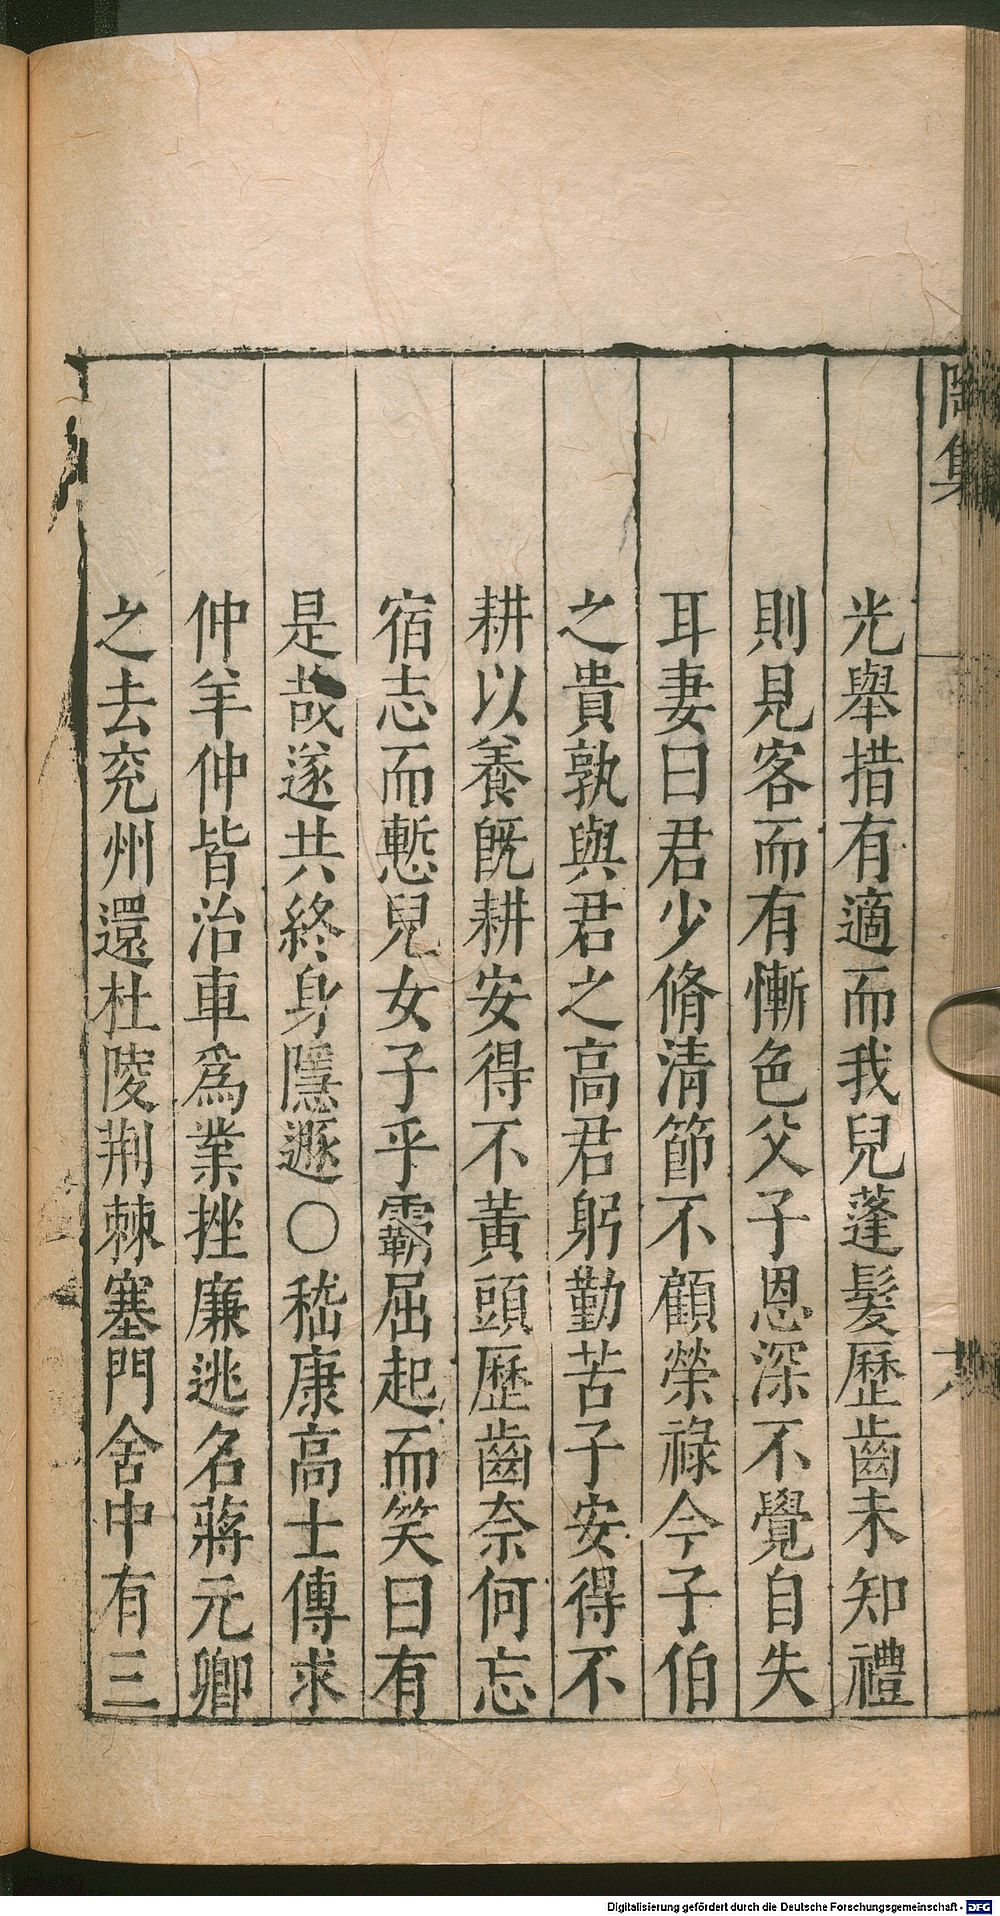 陶集
六
光舉措有適而我兒蓬髮歷齒未知禮
則見客而有慚色父子恩深不覺自失
耳妻曰君少脩清節不顧榮祿今子伯
之貴孰與君之高君躬勤苦子安得不
耕以養旣耕安得不黃頭歷齒奈何忘
宿志而慙兒女子乎霸屈起而笑曰有
是哉遂共終身隱遯○嵇康高士傳求
仲羊仲皆治車爲業挫廉逃名蔣元卿
之去兖州還杜陵荆棘塞門舍中有三
Digitalisierung gefördert durch die Deutsche Forschungsgemeinschaft - DFG